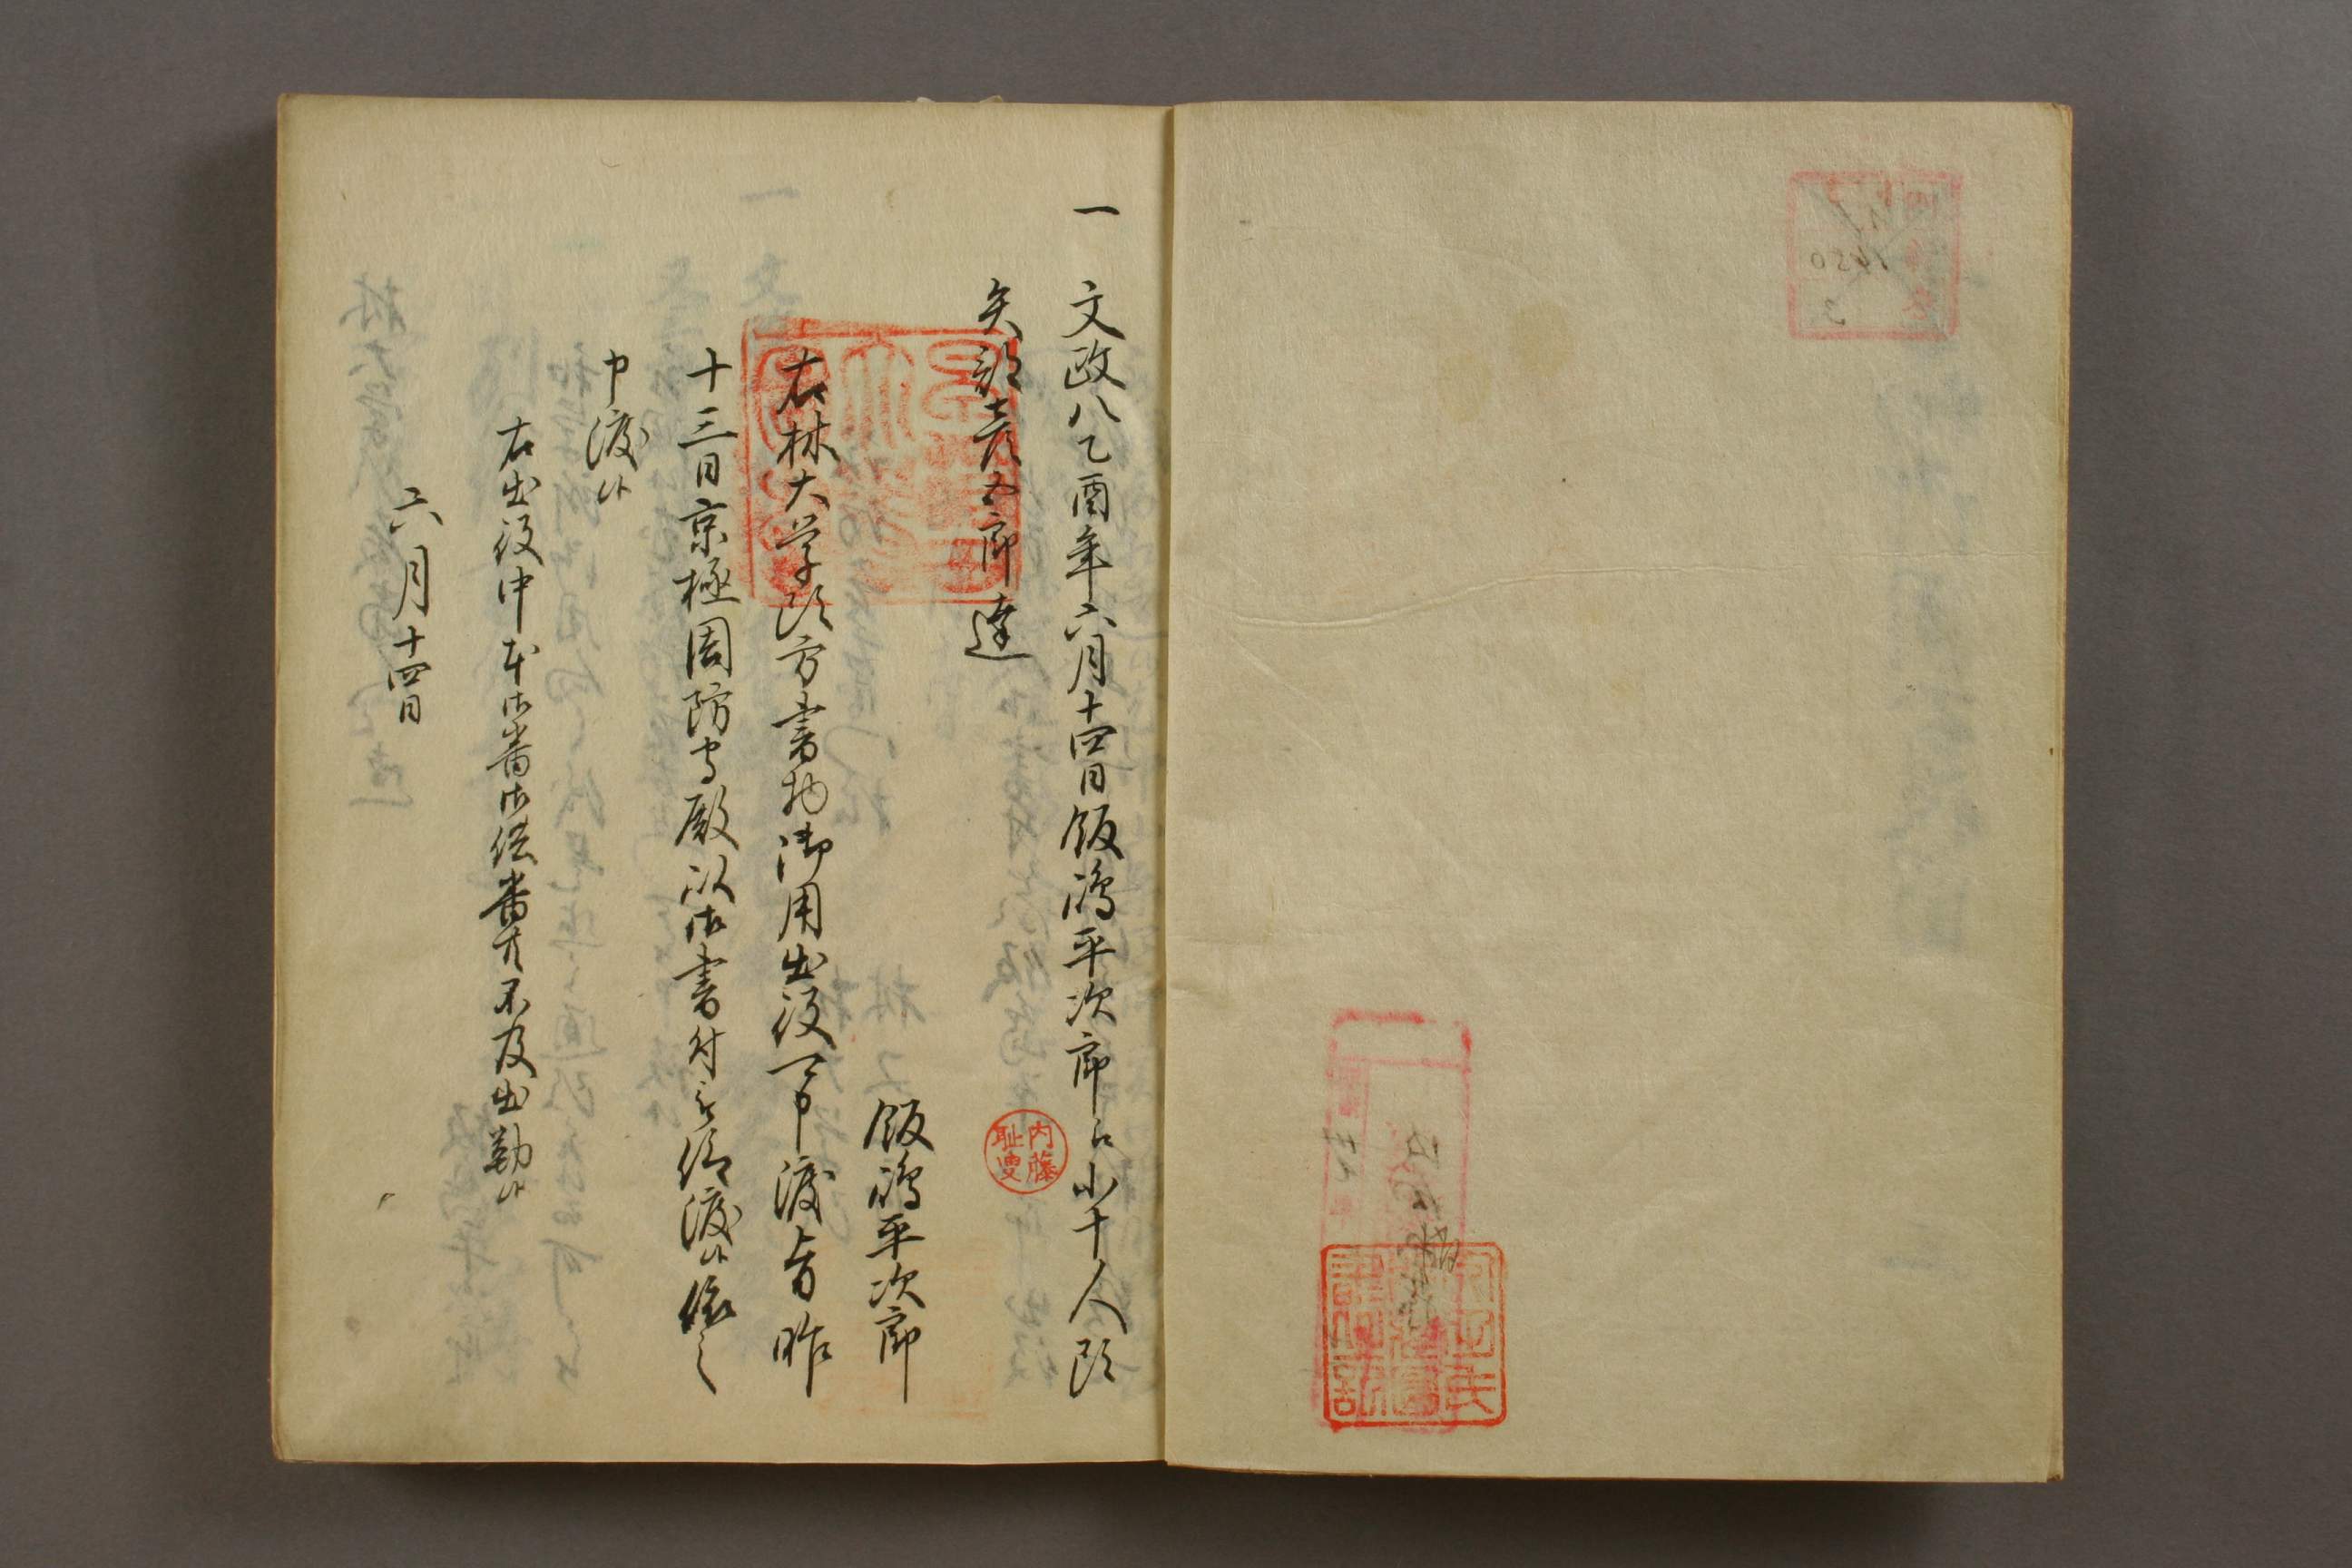 一 文政八乙酉年六月十四日飯嶋平次郎江小十人頭
矢部彦五郎達
飯嶋平次郎
右林大学頭方書物御用出役可申渡旨昨
十三日京極周防守殿以御書付被仰渡候依之
申渡候
右出役中本御番御供番共不及出勤候
六月十四日
内藤
耻叟